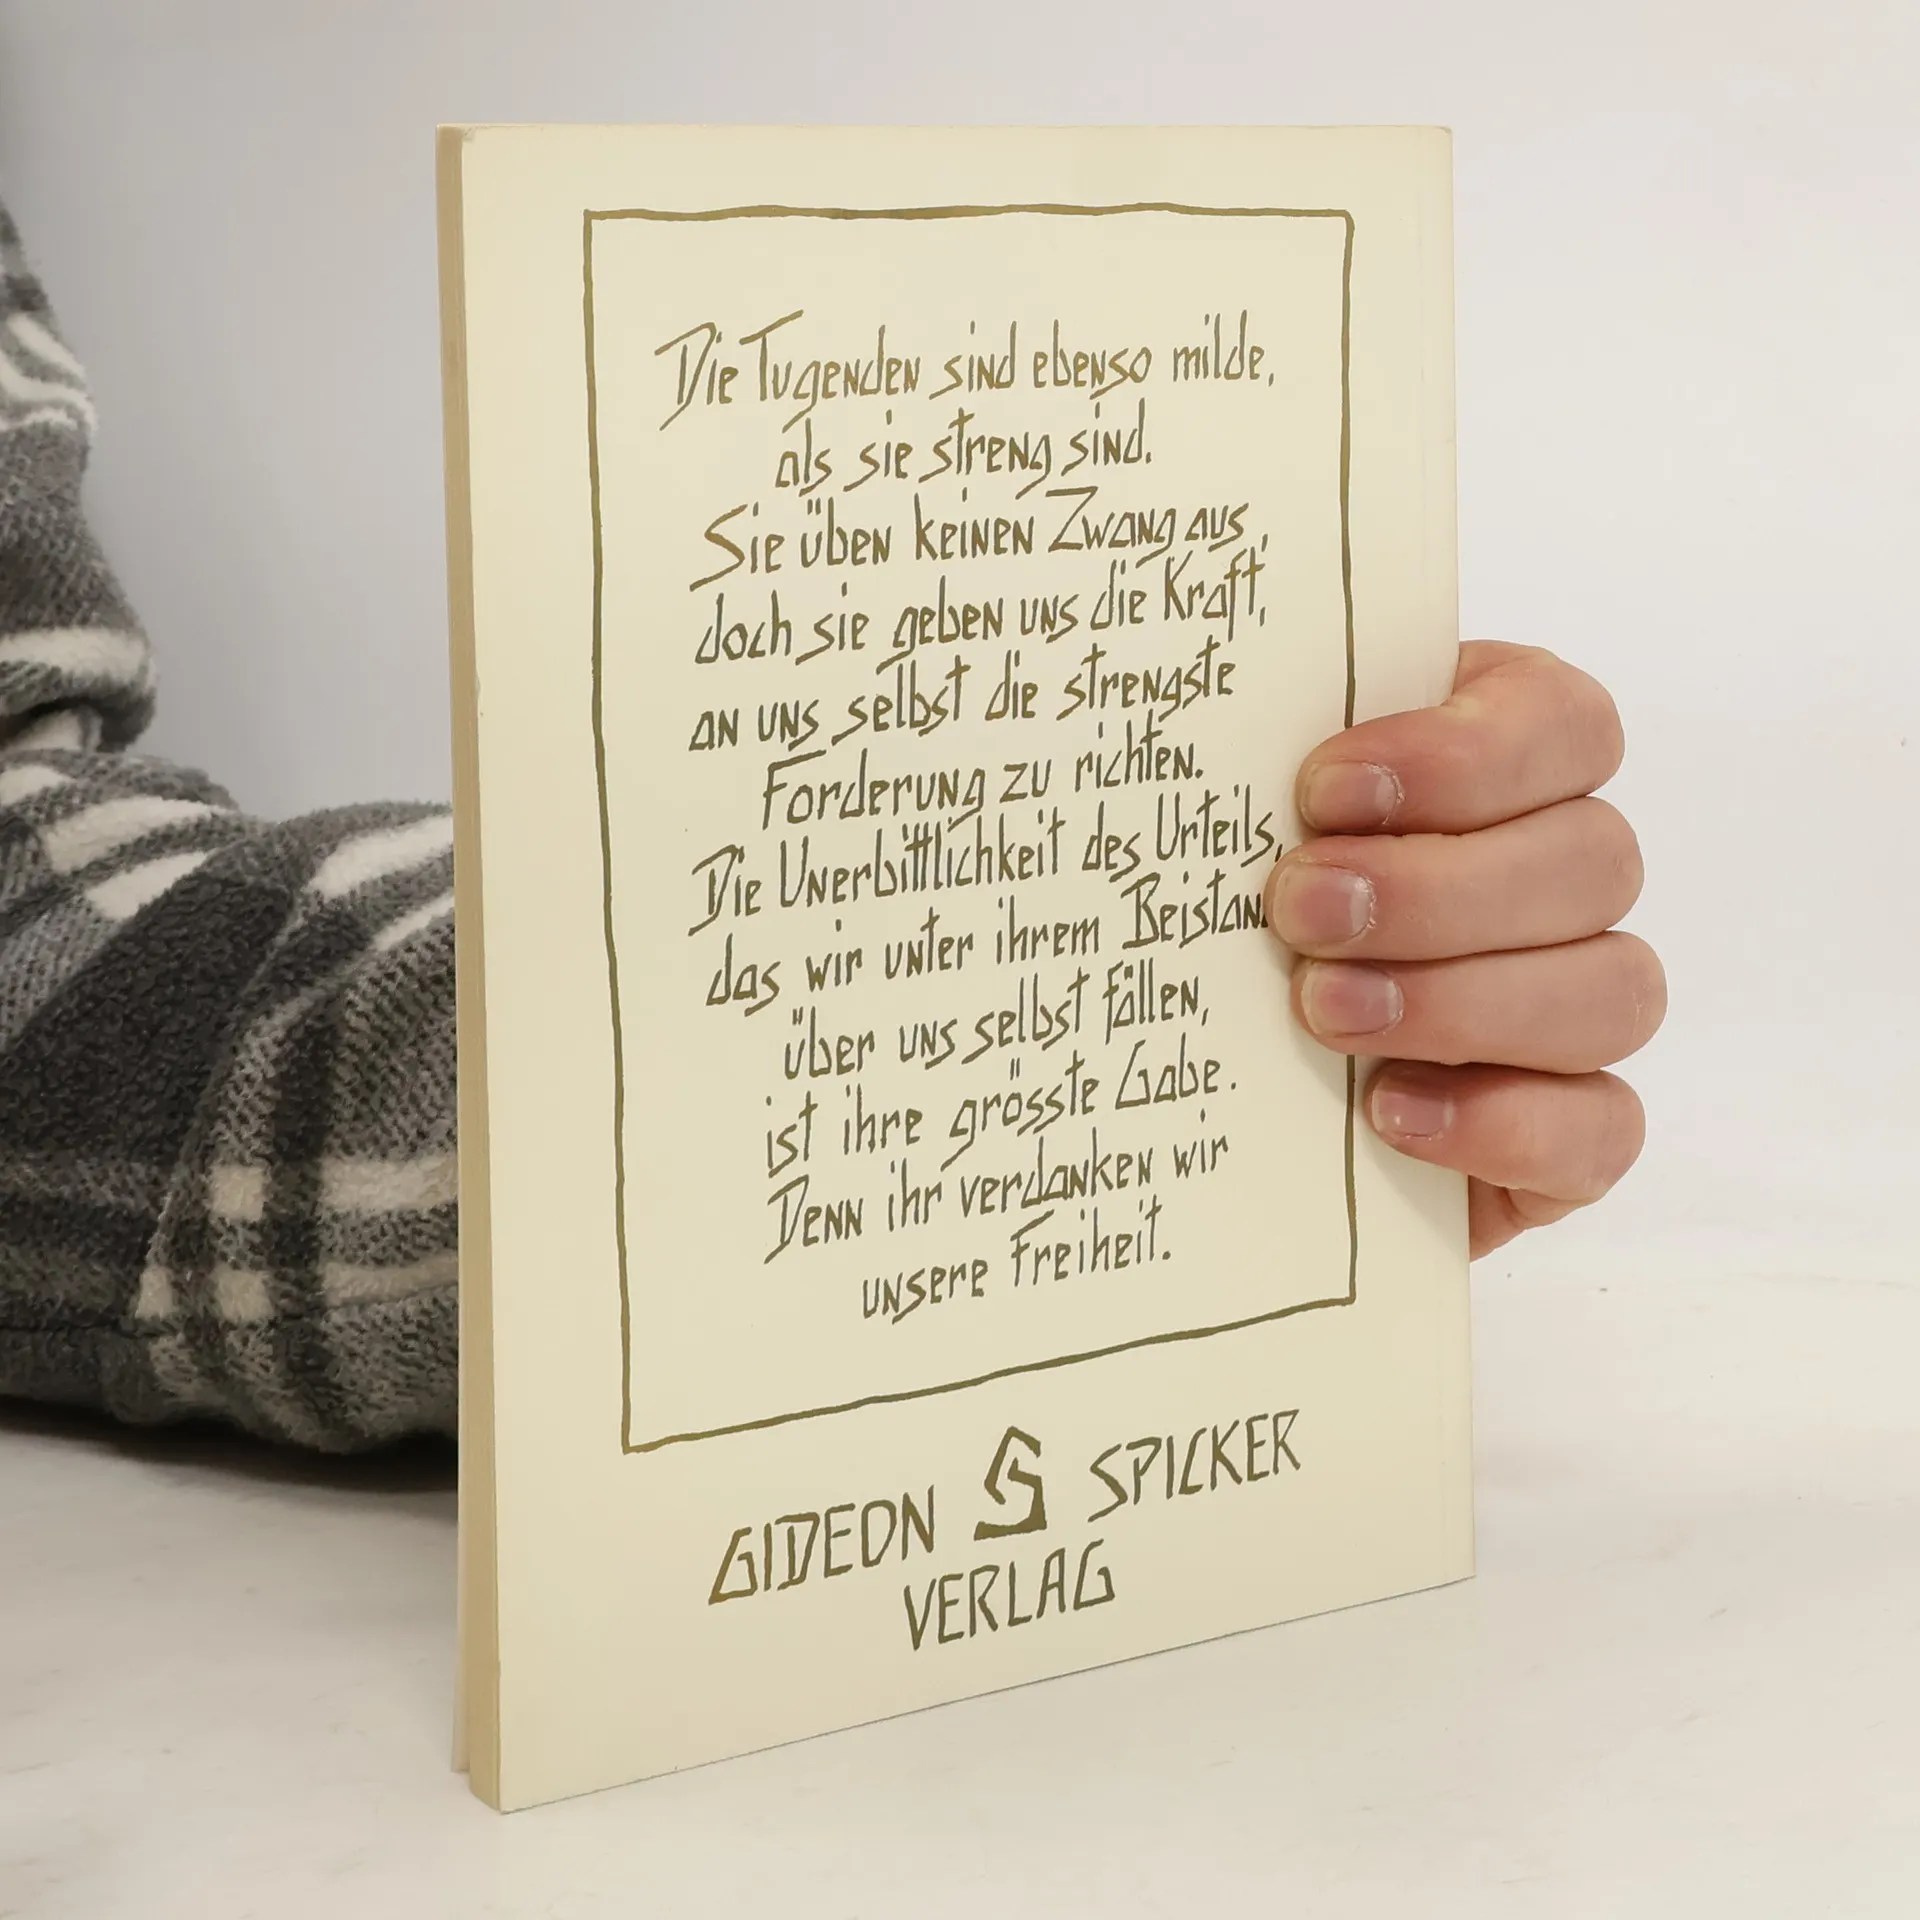 Die Tugenden sind ebenso milde,
als sie streng sind.
Sie üben keinen Zwang aus,
doch sie geben uns die Kraft,
an uns selbst die strengste
Forderung zu richten.
Die Unerbittlichkeit des Urteils,
das wir unter ihrem Beistand
über uns selbst fällen,
ist ihre grösste Gabe.
Denn ihr verdanken wir
unsere Freiheit.
GIDEON S SPICKER
VERLAG